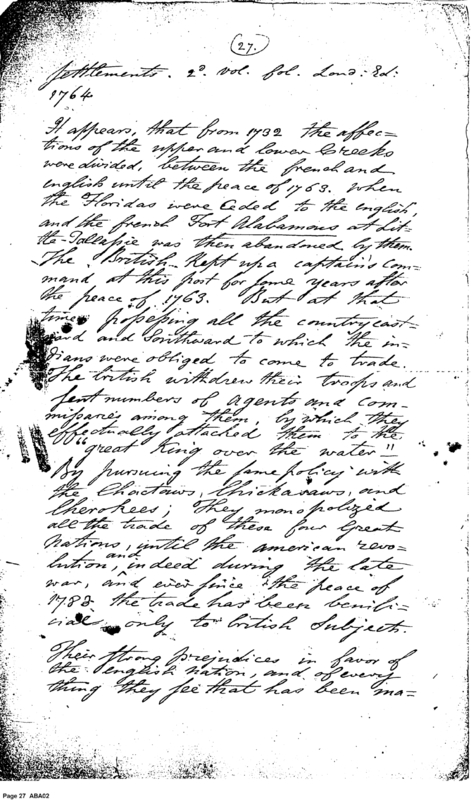 27.
settlements. 2d. vol. fol. Lond: Ed:
1764
It appears, that from 1732 the affec=
tions of the upper and lower Creeks
were divided, between the french and
english until the peace of 1763. when
the Floridas were Ceded to the english,
and the french Fort Alabamous at Lit=
tle-Tallassie was then abandoned by them.
The British kept up a captain's com=
mand at this post for some years after
the peace of 1763. But at that
time possessing all the country east=
ward and Southward to which the in=
dians were obliged to come to trade.
The british withdrew their troops and
sent numbers of agents and com=
missaries among them, by which they
effectually attached them to the
"great King over the water"
By pursuing the same policy with
the Choctaws, Chickasaws, and
Cherokees; They monopolized
all the trade of these four Great
Nations, until the american revo=
lution, and indeed during the late
war, and ever since the peace of
1783 the trade has been benifi=
cial only to british Subjects.
Their strong prejudices in favor of
the english nation, and of every
thing they see that has been ma=
Page 27 ABA02